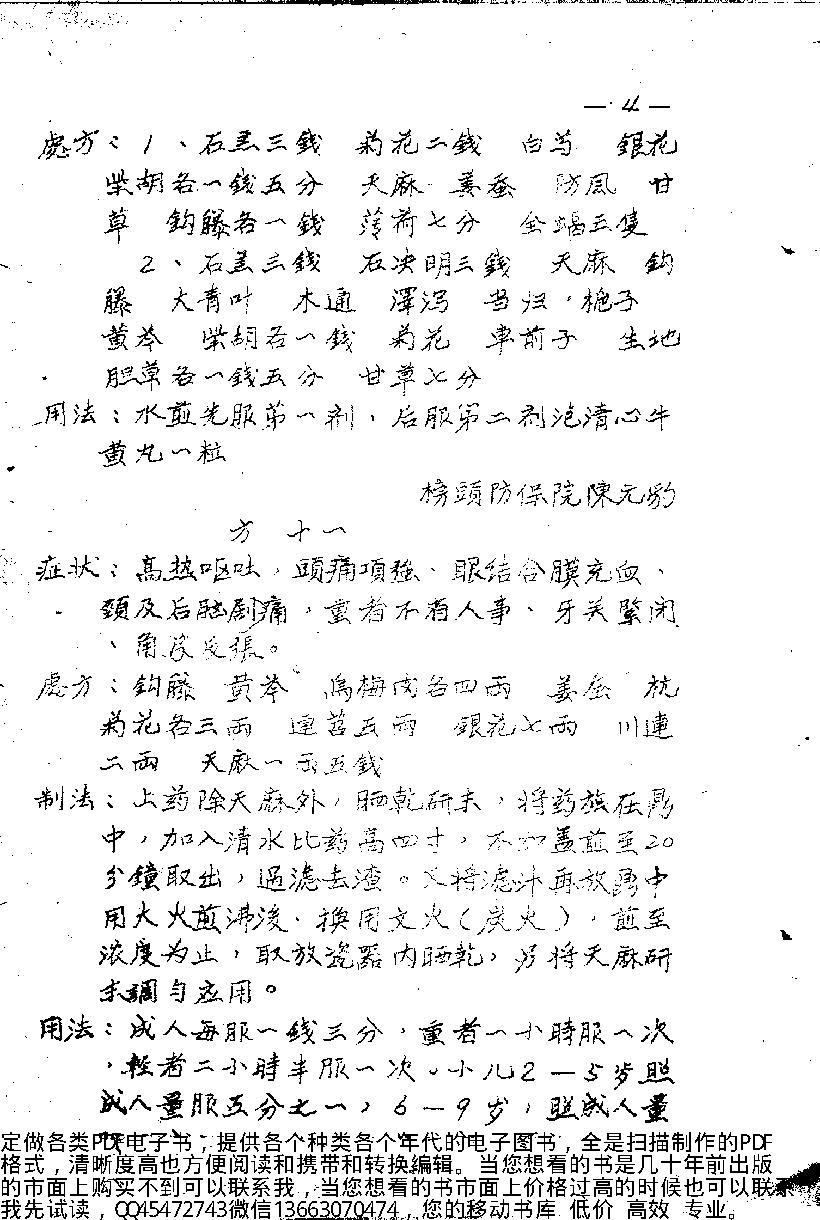 —4—
處方：1、石羔三錢　菊花二錢　白芍　銀花
柴胡各一錢五分　天麻　姜蚕　防風　甘
草　鈎藤各一錢　薄荷七分　全蝎五隻
2、石羔三錢　石决明三錢　天麻　鈎
藤　大青叶　木通　澤泻　当归，栀子
黄芩　柴胡各一錢　菊花　車前子　生地
胆草各一錢五分　甘草七分
用法：水煎先服第一剂，后服第二剂泡清心牛
黄丸一粒
榜頭防保院陳元豹
方十一
症状：高热呕吐，頭痛項强、眼结合膜充血、
頚及后脑剧痛，重者不省人事、牙关緊闭
、角反張。
處方：鈎藤　黄芩　烏梅肉各四兩　姜虫　杭
菊花各三兩　連召五兩　銀花七兩　川連
二兩　天麻一兩五錢
制法：上药除天麻外，晒乾研末，将药放在鼎
中，加入清水比药高四寸，不加盖煎至20
分鐘取出，過滤去渣。又将滤汁再放鼎中
用大火煎沸后，換用文火（炭火），煎至
浓度为止，取放瓷器内晒乾，另将天麻研
末調匀应用。
用法：成人每服一錢三分，重者一小時服一次
，輕者二小時半服一次。小儿2—5岁照
成人量服五分之一，6—9岁，照成人量
定做各类PDF电子书，提供各个种类各个年代的电子图书，全是扫描制作的PDF
格式，清晰度高也方便阅读和携带和转换编辑。当您想看的书是几十年前出版
的市面上购买不到可以联系我，当您想看的书市面上价格过高的时候也可以联系
我先试读，QQ45472743微信13663070474，您的移动书库 低价 高效 专业。